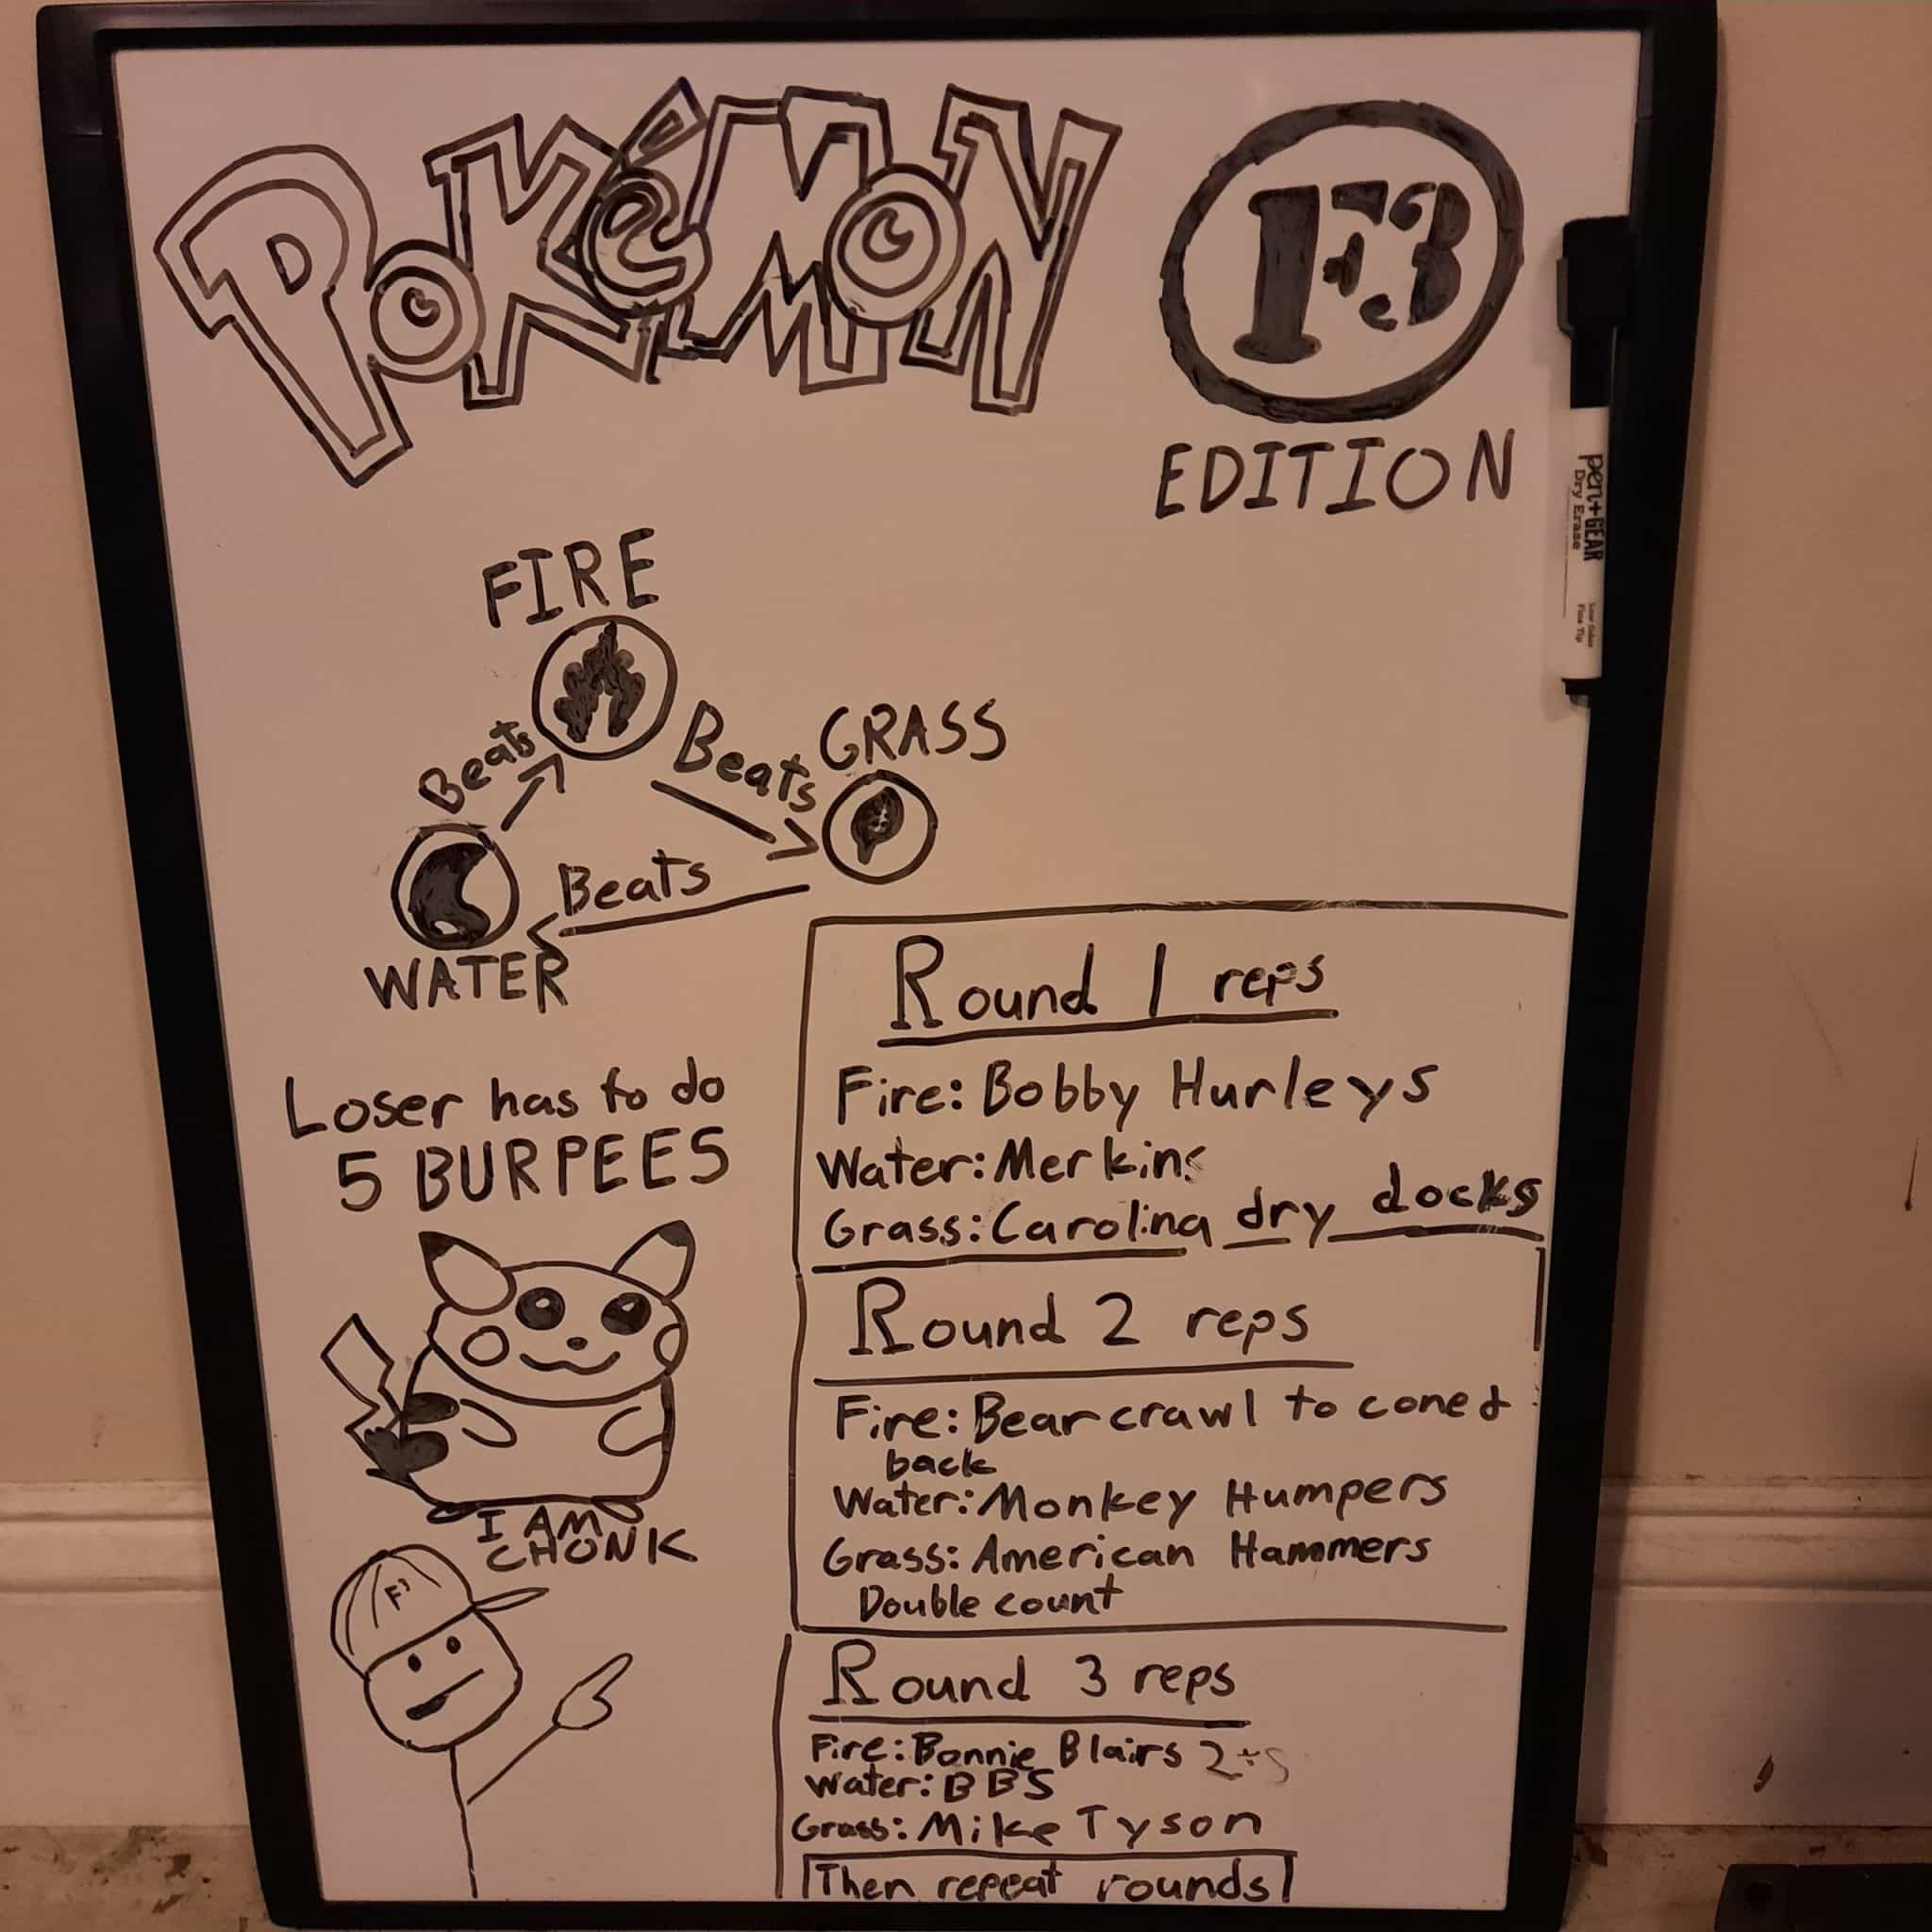 POKéMON
F3
EDITION
FIRE
Beats
Beats
GRASS
Beats
WATER
Loser has to do
5 BURPEES
I AM
CHONK
F3
Round 1 reps
Fire: Bobby Hurleys
Water: Merkins
Grass: Carolina dry docks
Round 2 reps
Fire: Bear crawl to cone &
back
Water: Monkey Humpers
Grass: American Hammers
Double count
Round 3 reps
Fire: Bonnie Blairs
Water: BBS
Grass: Mike Tyson
Then repeat rounds
pen+GEAR
Dry Erase
Low Odor
Fine Tip